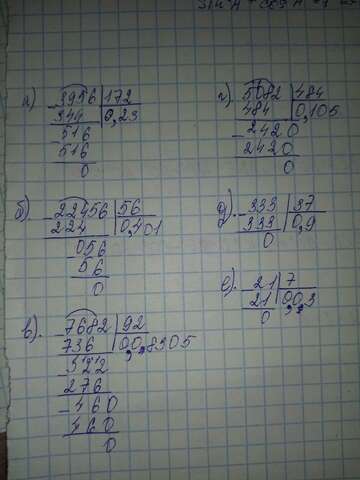 а) 3956 | 172
344 | 0,23
516
516
0
б). 22456 | 56
224 | 0,401
056
56
0
в). 7682 | 92
736 | 0,0,8305
322
276
460
460
0
г) 5082 | 484
484 | 0,105
2420
2420
0
д). 333 | 37
333 | 0,9
0
е). 21 | 7
21 | 0,0,3
0